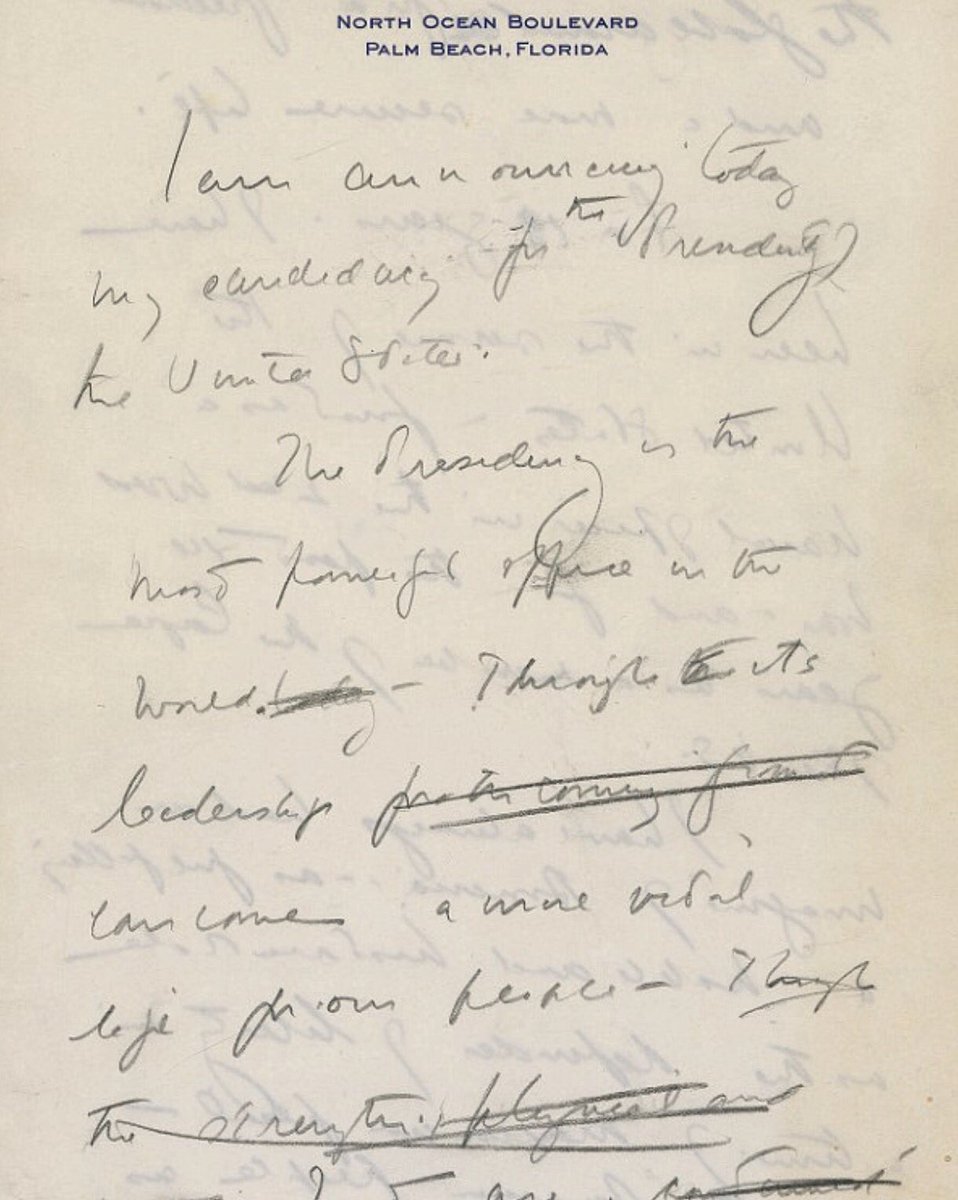 NORTH OCEAN BOULEVARD
PALM BEACH, FLORIDA
I am announcing today
my candidacy for the Presidency
the United States.
The Presidency is the
most powerful office in the
world. – Through its
leadership forthcoming from it
can come a more vital
life for our people – Through
the strength physical and